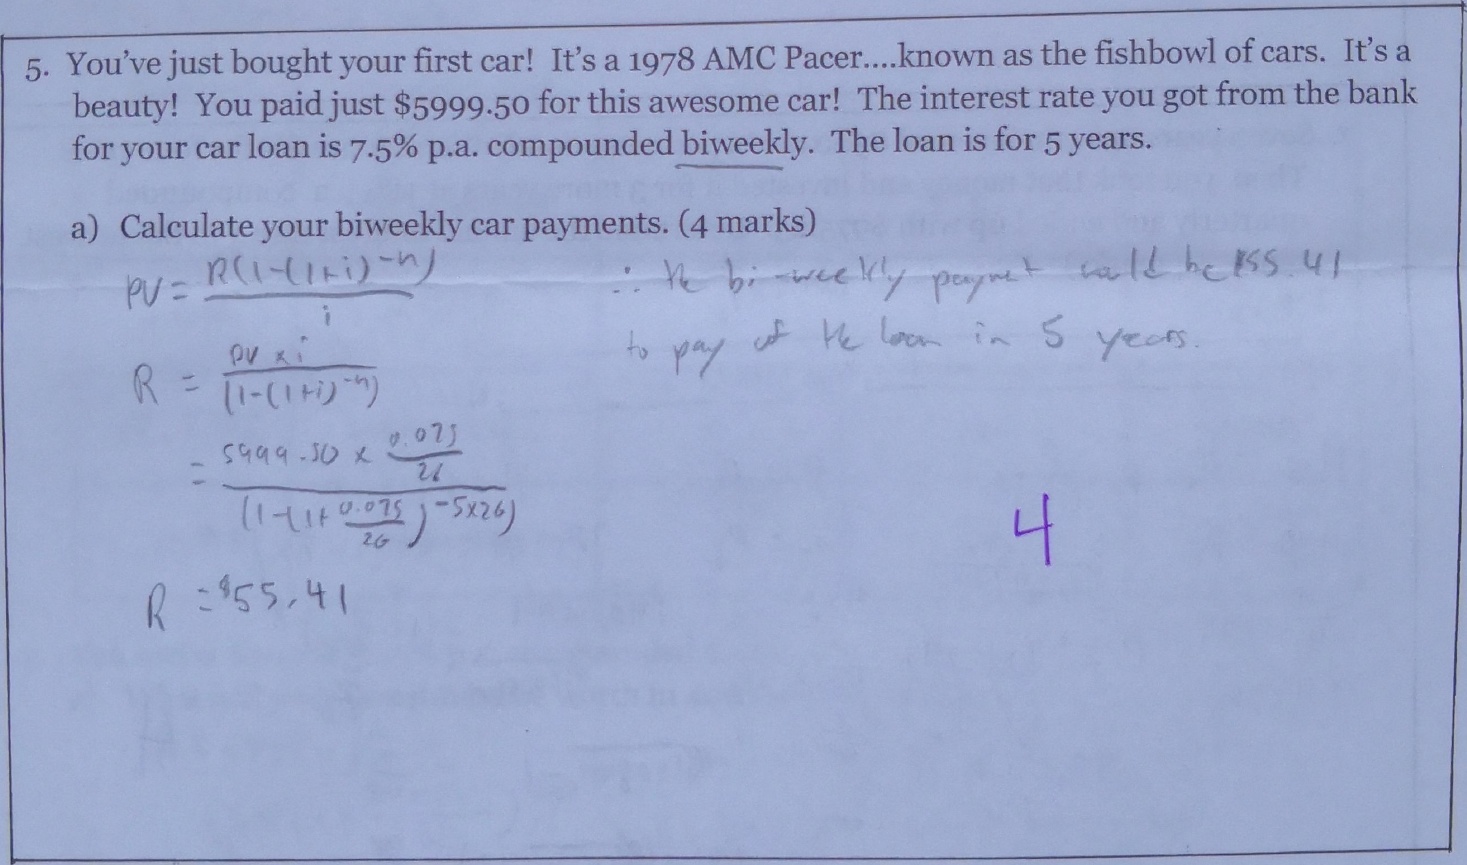 5. You've just bought your first car! It's a 1978 AMC Pacer....known as the fishbowl of cars. It's a
beauty! You paid just $5999.50 for this awesome car! The interest rate you got from the bank
for your car loan is 7.5% p.a. compounded biweekly. The loan is for 5 years.
a) Calculate your biweekly car payments. (4 marks)
PV = R(1-(1+i)^-n) / i
R = PV x i / (1-(1+i)^-n)
= 5999.50 x 0.075/26 / (1-(1+0.075/26)^-5x26)
R = $55.41
∴ the bi-weekly paymet would be $55.41
to pay of the loan in 5 years.
4